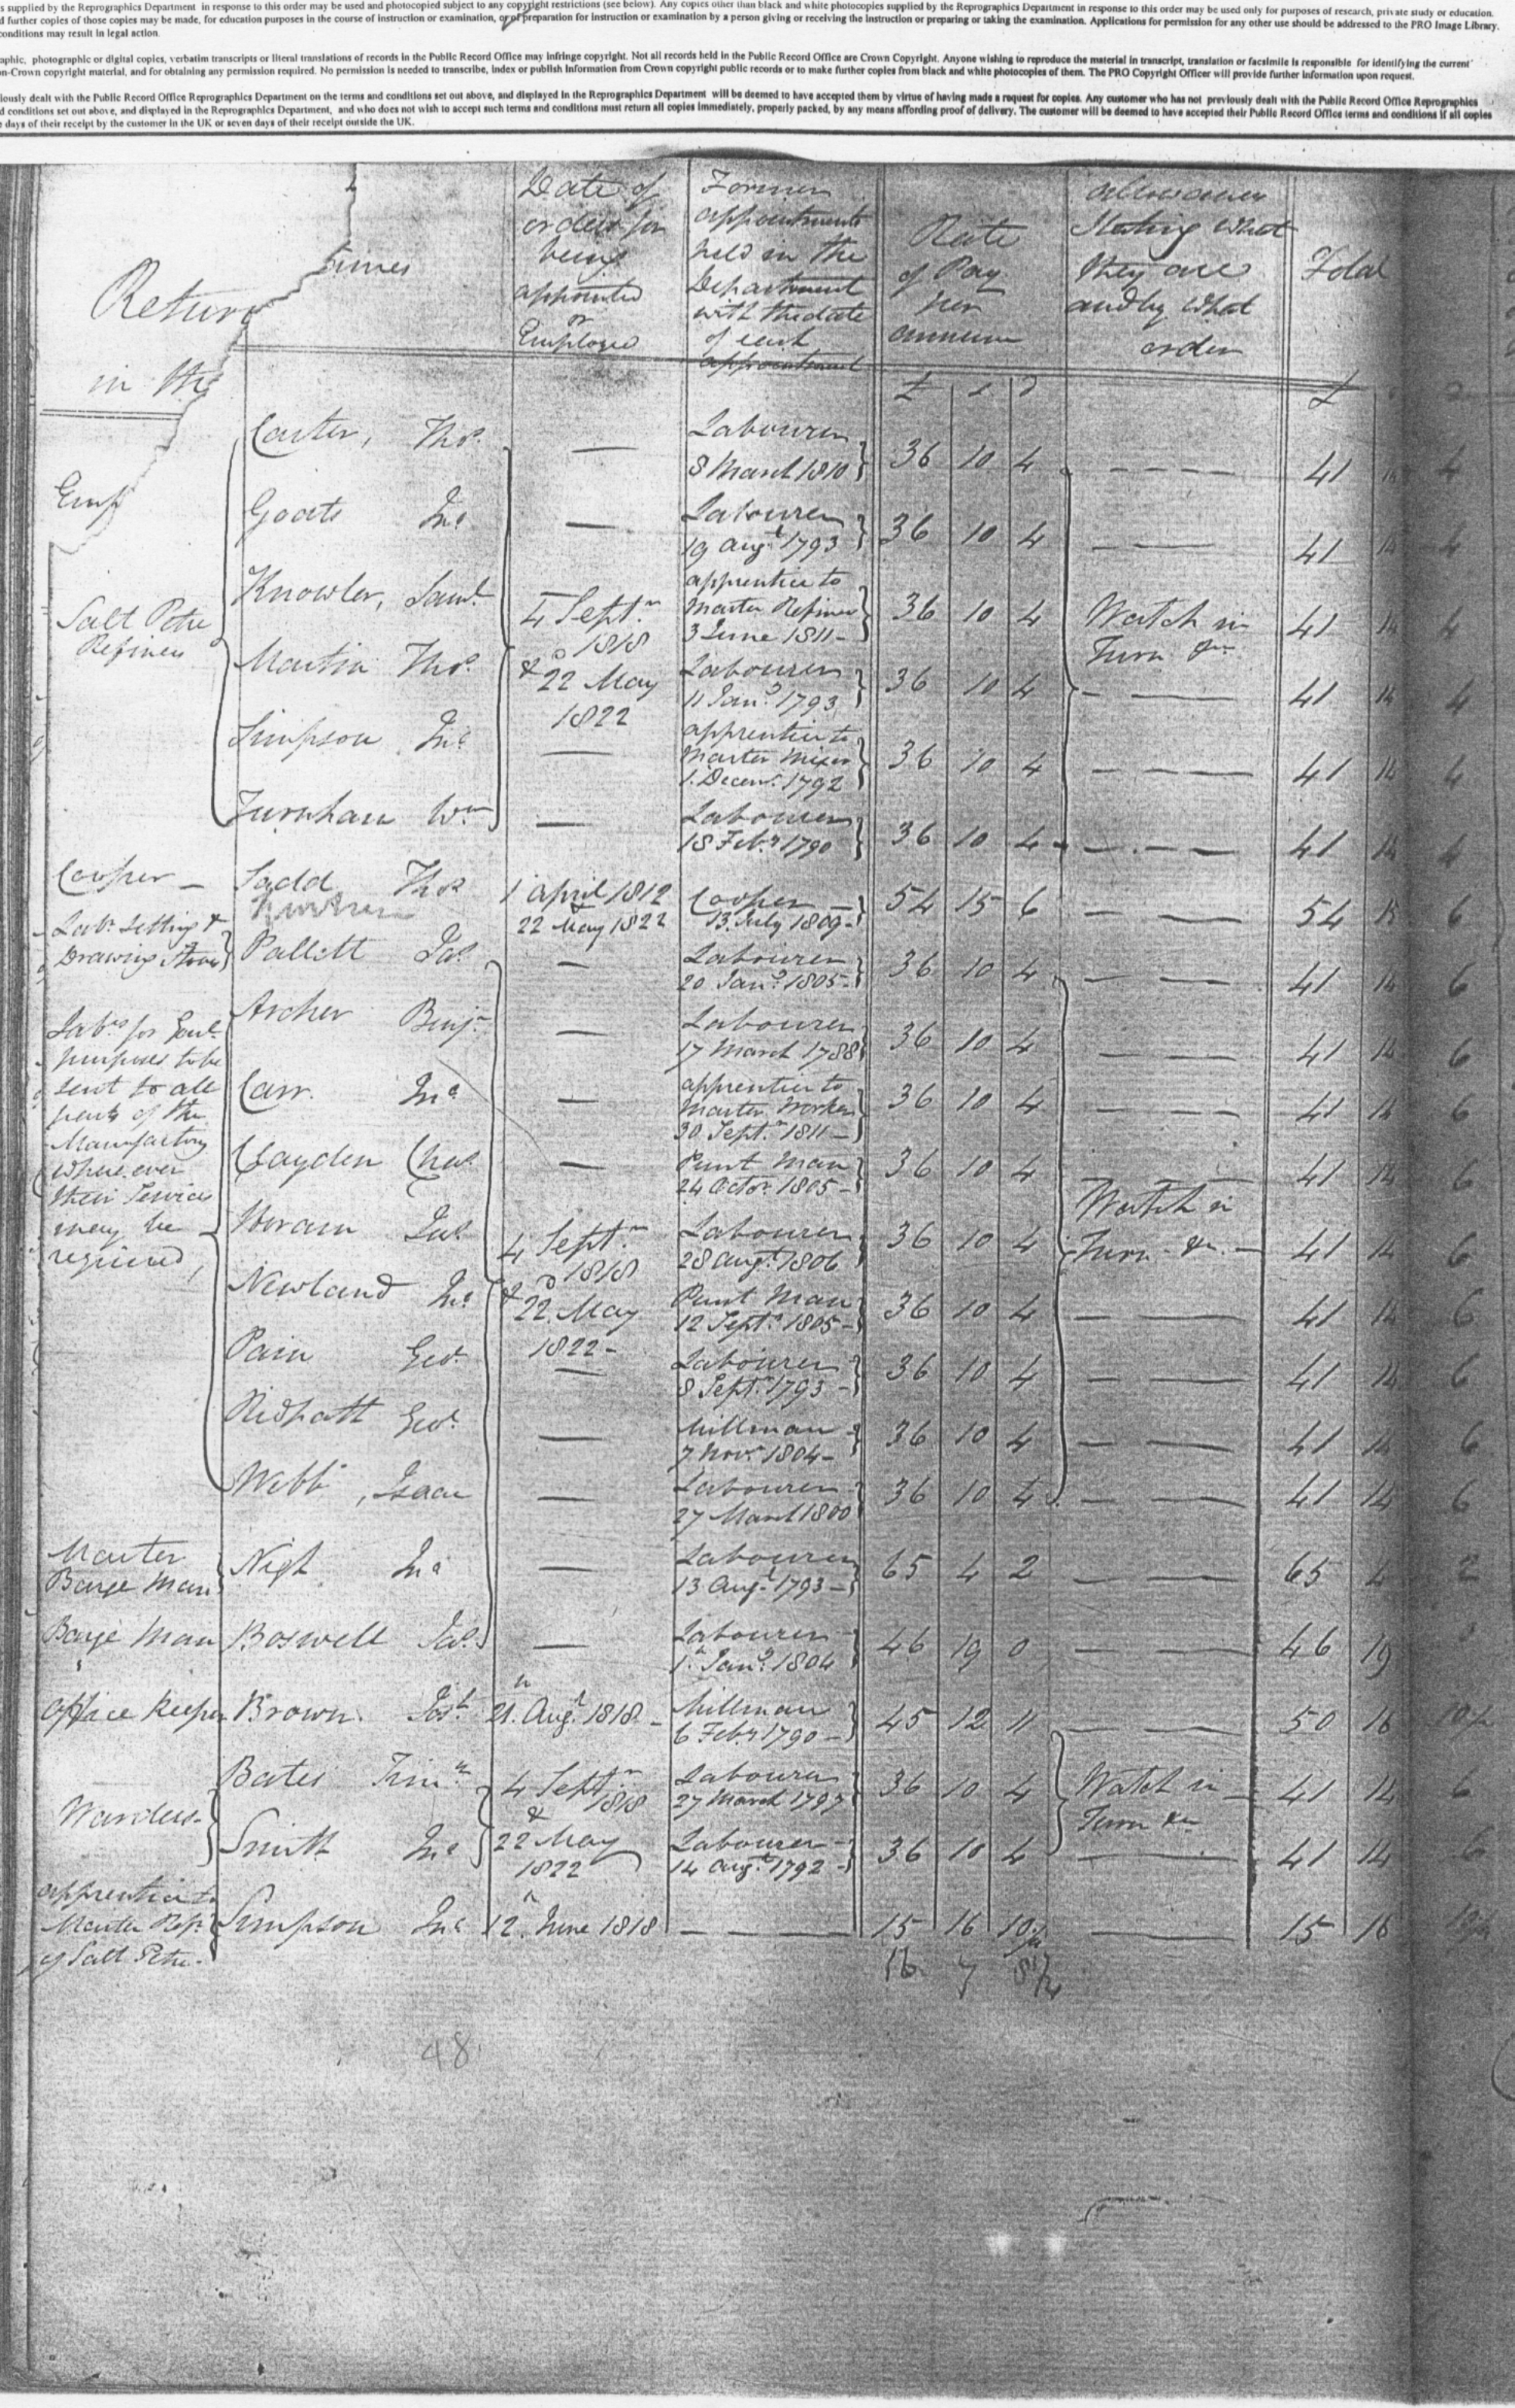 s supplied by the Reprographics Department in response to this order may be used and photocopied subject to any copyright restrictions (see below). Any copies other than black and white photocopies supplied by the Reprographics Department in response to this order may be used only for purposes of research, private study or education.
d further copies of those copies may be made, for education purposes in the course of instruction or examination, or of preparation for instruction or examination by a person giving or receiving the instruction or preparing or taking the examination. Applications for permission for any other use should be addressed to the PRO Image Library.
conditions may result in legal action.
aphic, photographic or digital copies, verbatim transcripts or literal translations of records in the Public Record Office may infringe copyright. Not all records held in the Public Record Office are Crown Copyright. Anyone wishing to reproduce the material in transcript, translation or facsimile is responsible for identifying the current
n-Crown copyright material, and for obtaining any permission required. No permission is needed to transcribe, index or publish information from Crown copyright public records or to make further copies from black and white photocopies of them. The PRO Copyright Officer will provide further information upon request.
iously dealt with the Public Record Office Reprographics Department on the terms and conditions set out above, and displayed in the Reprographics Department will be deemed to have accepted them by virtue of having made a request for copies. Any customer who has not previously dealt with the Public Record Office Reprographics
d conditions set out above, and displayed in the Reprographics Department, and who does not wish to accept such terms and conditions must return all copies immediately, properly packed, by any means affording proof of delivery. The customer will be deemed to have accepted their Public Record Office terms and conditions if all copies
e days of their receipt by the customer in the UK or seven days of their receipt outside the UK.
Return
in the
Emp
Date of
orders for
being
appointed
or
Employed
Former
appointments
held in the
Department
with the date
of each
appointment
Rate
of Pay
per
annum
allowances
Stating What
they are
and by what
order
Total
£ s d £
Salt Petre
Refiners
Carter, Thos. — Labourer 8 March 1810 36 10 4 — 41 14 4
Goats Jno. — Labourer 19 Augt. 1793 36 10 4 — 41 14 4
Knowler, Saml. apprentice to Master Refiner 3 June 1811 36 10 4 Watch in 41 14 4
4 Septr. 1818
& 22 May 1822
Turn &c
Martin Thos. Labourer 11 Jany. 1793 36 10 4 — 41 14 4
Simpson Jno. — apprentice to Master Mixer 1. Decemr. 1792 36 10 4 — 41 14 4
Turnham Wm. — Labourer 18 Feby. 1790 36 10 4 — 41 14 4
Cooper — Sadd Thos. 1 April 1812 Cooper — 54 15 6 — 54 15 6
22 May 1822 13 July 1809
Labr. Setting &
Drawing Stoves Pallett Jas. — Labourer 20 Jany. 1805 36 10 4 — 41 14 6
Labrs. for Genl.
purposes to be
sent to all
parts of the
Manufactory
where ever
their Services
may be
required,
Archer Benjn. — Labourer 17 March 1788 36 10 4 — 41 14 6
Carr. Jno. — apprentice to Master Worker 30 Septr. 1811 36 10 4 — 41 14 6
Clayden Chas. — Punt Man 24 Octor. 1805 36 10 4 — 41 14 6
Horam Jas. Labourer 28 Augt. 1806 36 10 4 Watch in Turn &c. — 41 14 6
4 Septr. 1818
& 22 May
1822
Newland Jno. Punt Man 12 Septr. 1805 36 10 4 — 41 14 6
Pain Geo. — Labourer 8 Septr. 1793 36 10 4 — 41 14 6
Ridpath Geo. — Millman 7 Novr. 1804 36 10 4 — 41 14 6
Webb, Isaac — Labourer 27 March 1800 36 10 4 — 41 14 6
Master
Barge Man Nigh Jno. — Labourer 13 Augt. 1793 65 4 2 — 65 4 2
Barge Man Boswell Jas. — Labourer 1. Jany. 1804 46 19 0 — 46 19
Office Keeper Brown. Josh. 21. Augt. 1818 — Millman 6 Feby. 1790 45 12 11 — 50 16
Warders
Bates Timy. 4 Septr. 1818 Labourer 27 March 1797 36 10 4 Watch in 41 14 6
& Turn &c
Smith Jno. 22 May 1822 Labourer 14 Augt. 1792 36 10 4 — 41 14 6
apprentice to
Master Refr.
of Salt Petre. Simpson Jno. 12. June 1818 — 15 16 10½ — 15 16
16 7 8¼
48